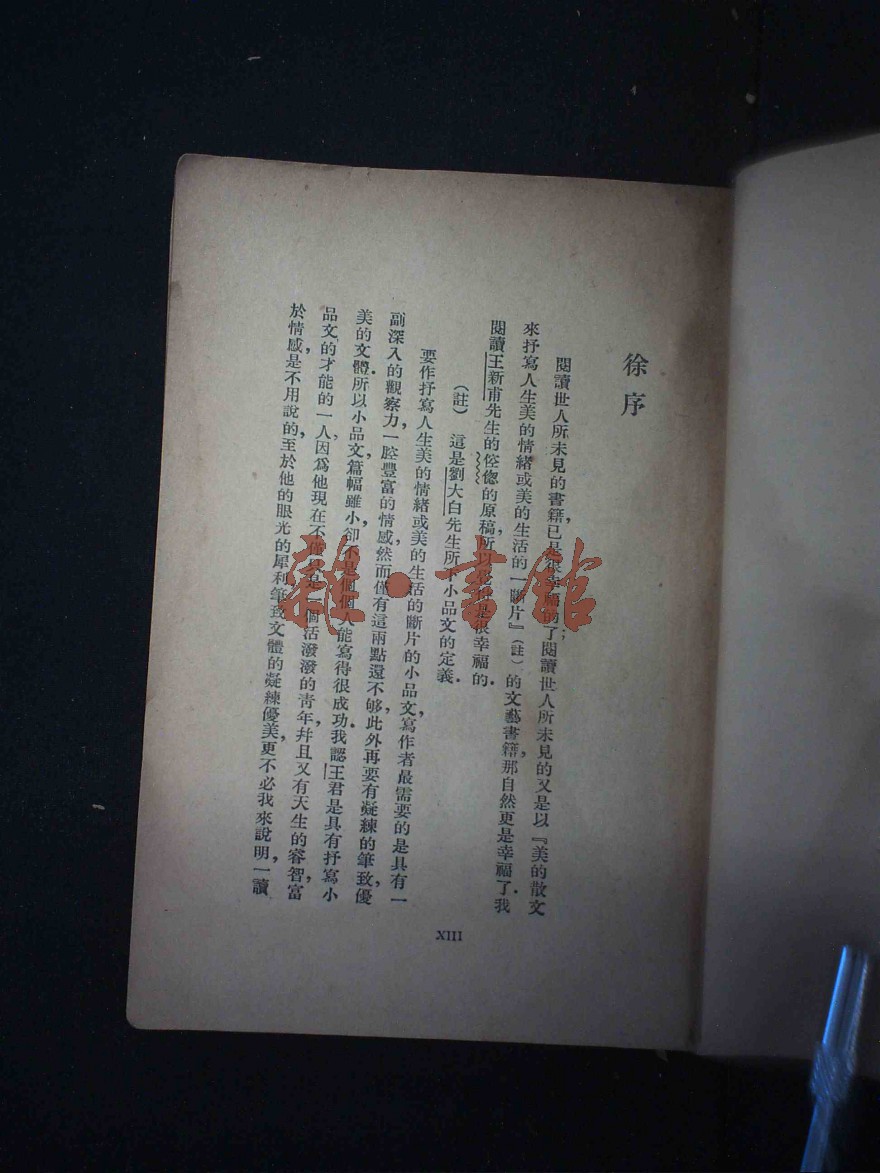 徐序
閱讀世人所未見的書籍，已是很幸福的了；閱讀世人所未見的又是以『美的散文
來抒寫人生美的情緒或美的生活的一斷片』（註）的文藝書籍，那自然更是幸福了．我
閱讀王新甫先生的倥傯的原稿，所以是很幸福的．
（註） 這是劉大白先生所下小品文的定義．
要作抒寫人生美的情緒或美的生活的斷片的小品文，寫作者最需要的是具有一
副深入的觀察力，一腔豐富的情感，然而僅有這兩點還不够，此外再要有凝練的筆致，優
美的文體．所以小品文篇幅雖小，卻不是個個人能寫得很成功．我認王君是具有抒寫小
品文的才能的一人，因爲他現在不僅只是一個活潑潑的青年，幷且又有天生的睿智，富
於情感，是不用說的，至於他的眼光的犀利，筆致文體的凝練優美，更不必我來說明，一讀
XIII
雜·書館